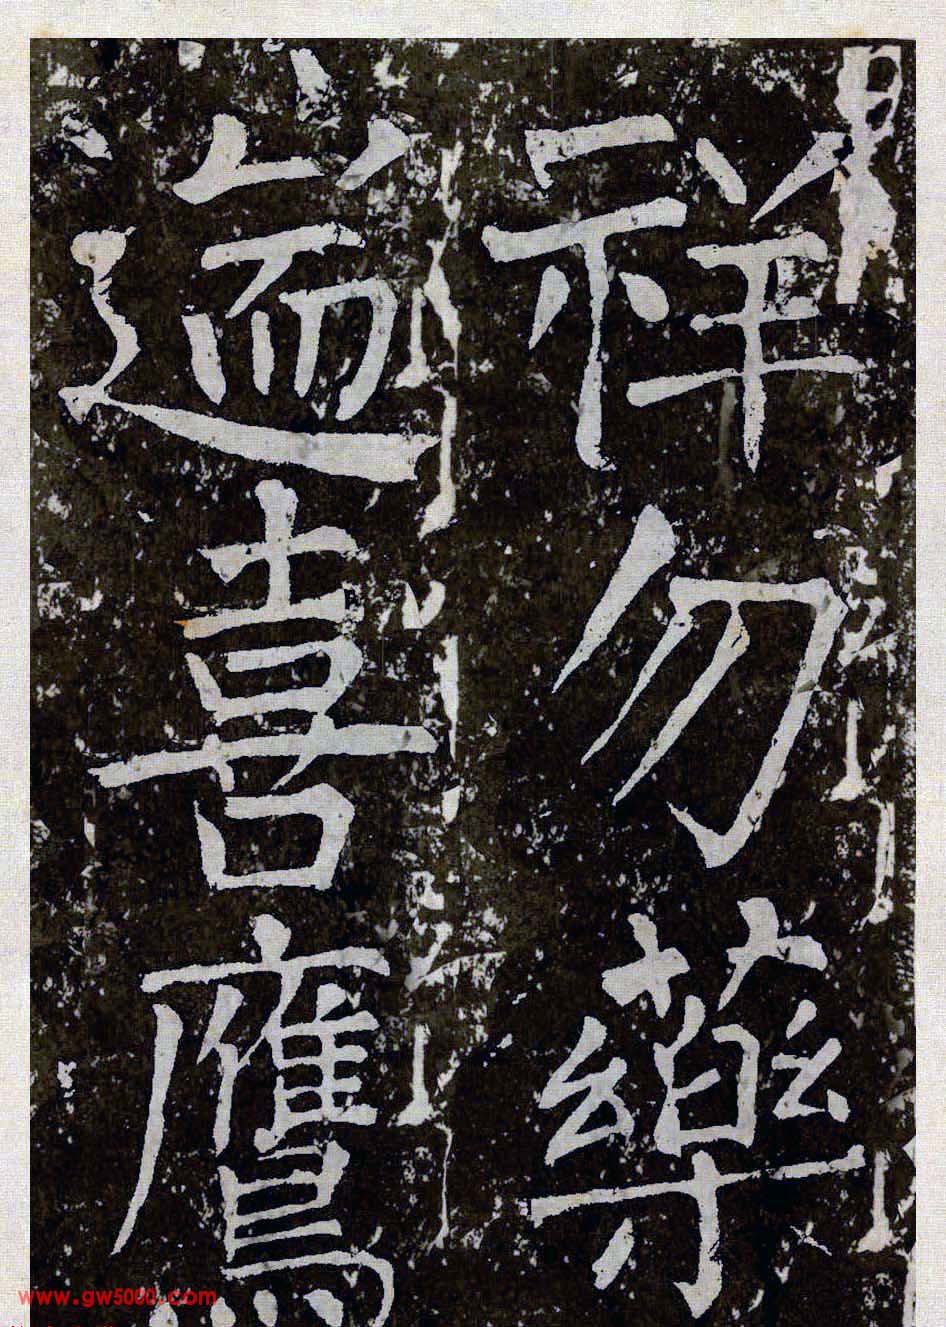 祥勿藥
遄喜鷹
www.gw5000.com